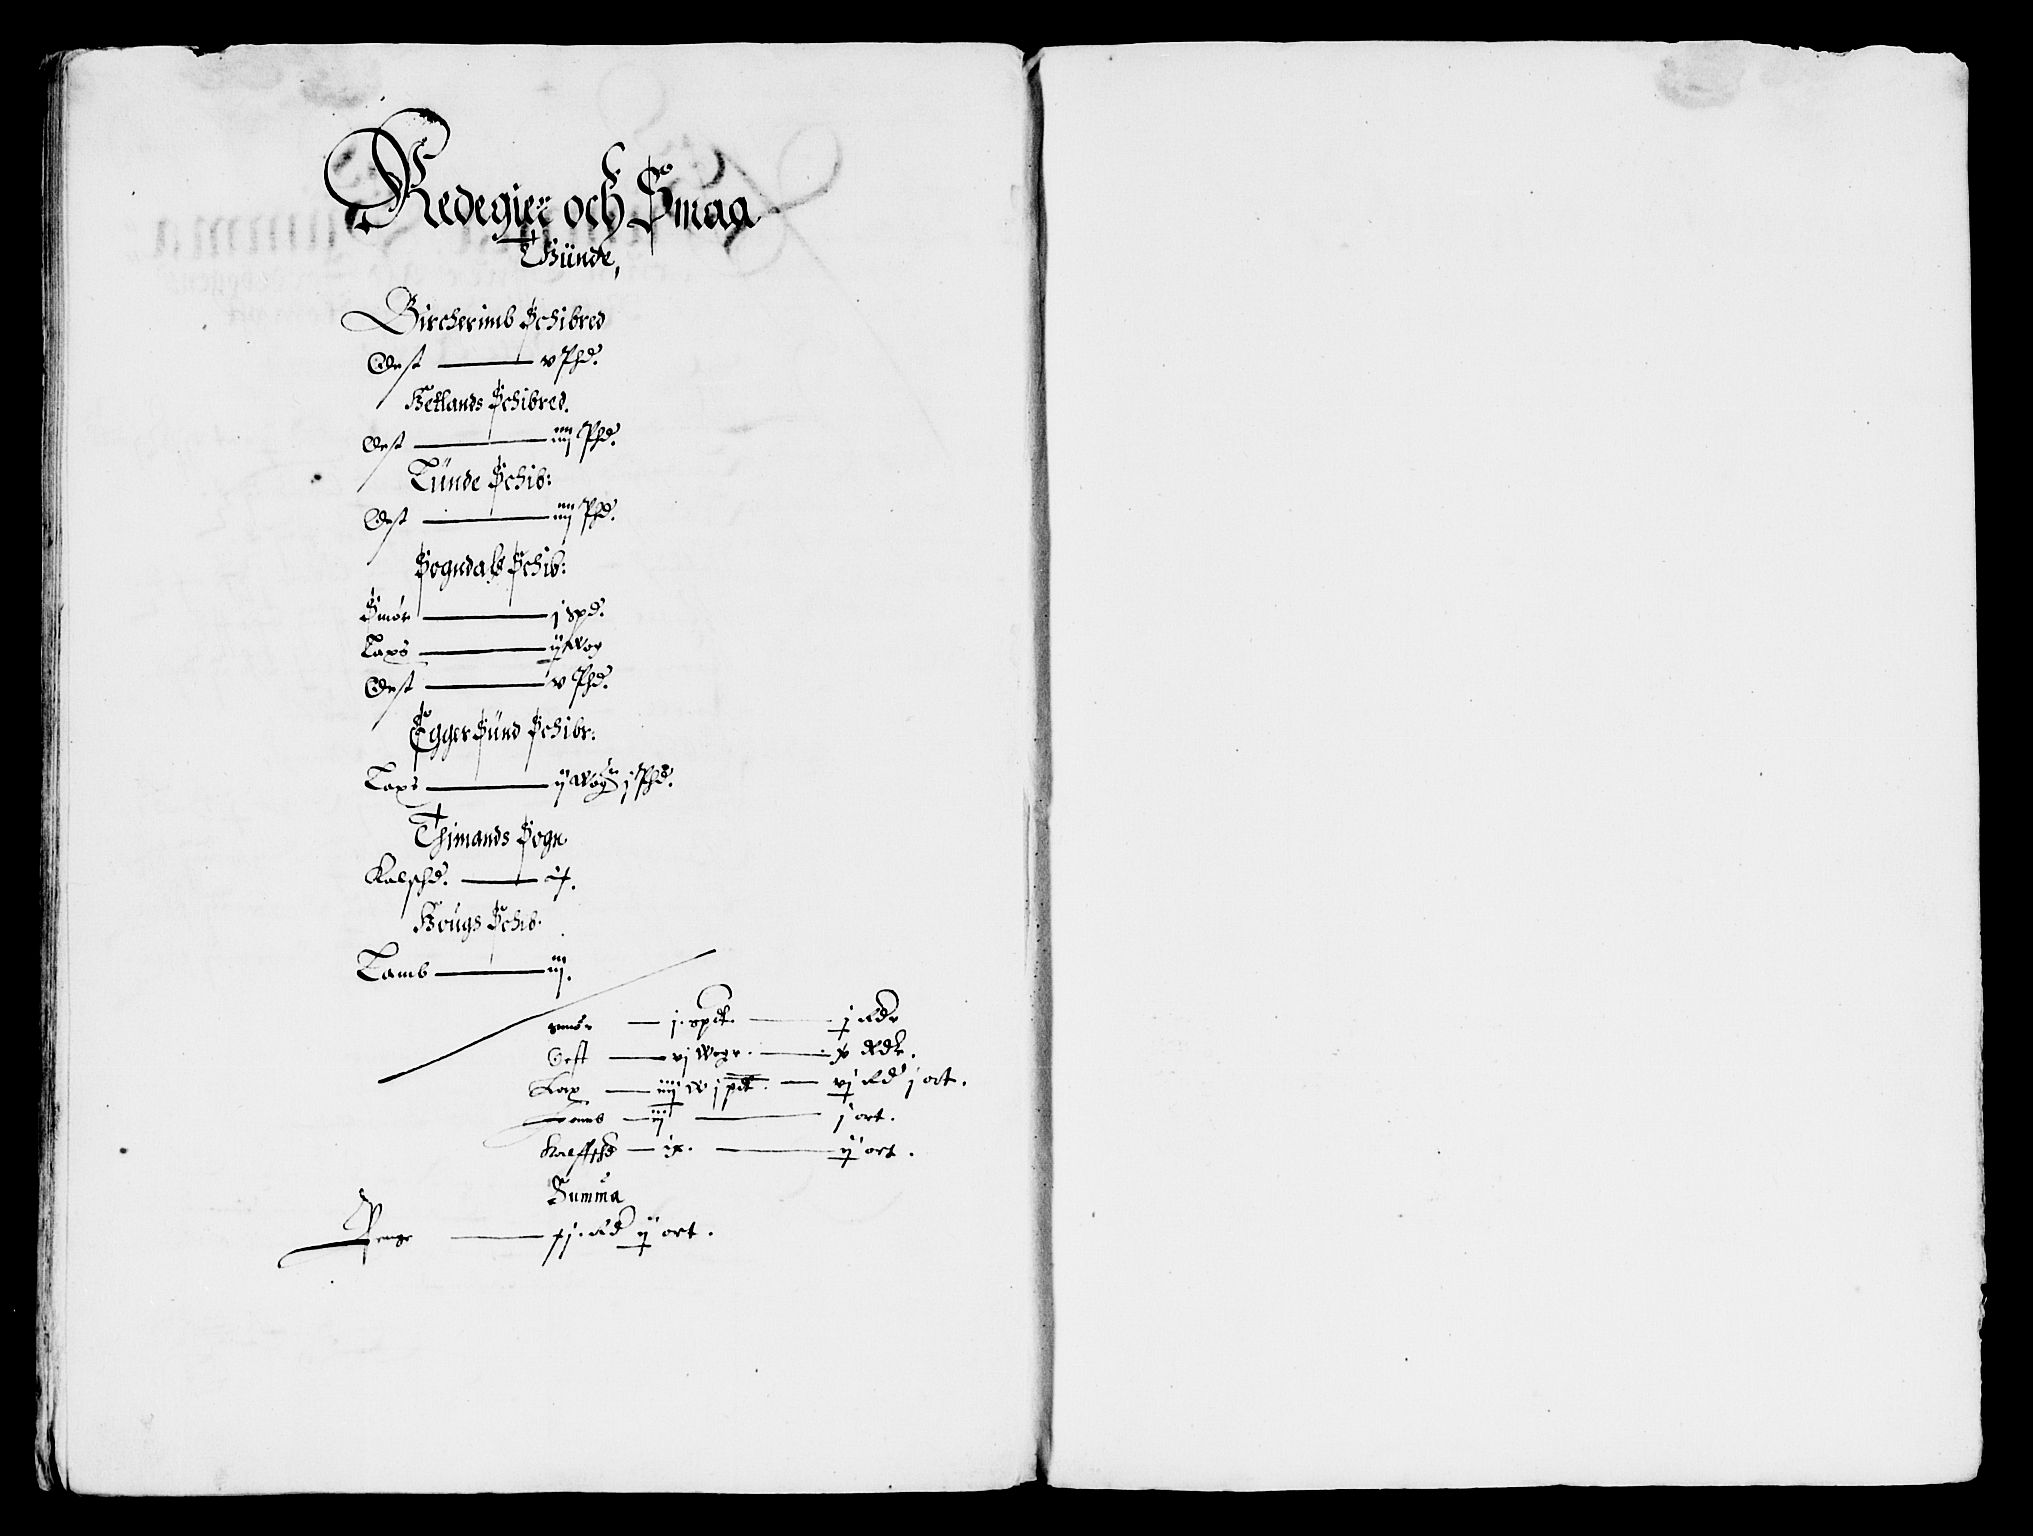 Redegier och Smaa
Thiinde,
Bircherimb Schibred
Oest v Phd.
Hetlands Schibred.
Oest iiij Phd.
Lünde Schib:
Oest iiij Phd.
Sogndals Schib:
Smør j spd.
Laxs ij Wog
Oest v Phd.
EggerSünd Schibr:
Laxs ij Wog j Phd.
Thimands Sogn
Kalfschd. ix.
Hougs Schib.
Lamb iij.
Smør j. spdt. j Rdr
Oest vj Woge. x Rdr.
Lax iiij W j pdt. vj Rd j ort.
Lamb iij j ort.
Kalffschd ix. ij ort.
Summa
Penge xvij Rd ij ort.